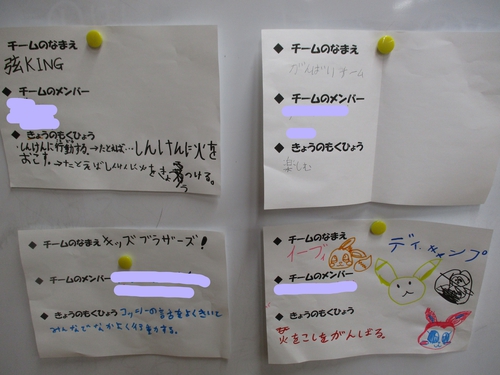 チームのなまえ
弦KING
◆ チームのメンバー
◆ きょうのもくひょう
しんけんに行動する。→たとえば…しんけんに火を
おこす。→たとえばしんけんに火をきょうつける。
◆ チームのなまえ
がんばりチーム
◆ チームのメンバー
◆ きょうのもくひょう
楽しむ
◆ チームのなまえ キッズブラザーズ!
◆ チームのメンバー
◆ きょうのもくひょう
みんなでなかよく行動する。
◆ チームのなまえ
イーブイ
ディキャンプ
◆ チームのメンバー
◆ きょうのもくひょう
火をこしをがんばる。